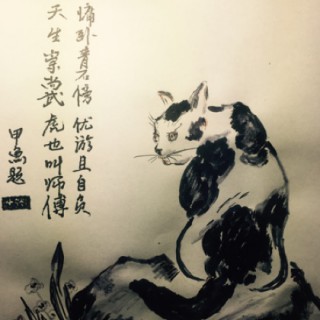 慵卧青石傍优游且自负
天生崇武虎也叫师傅
甲鱼题